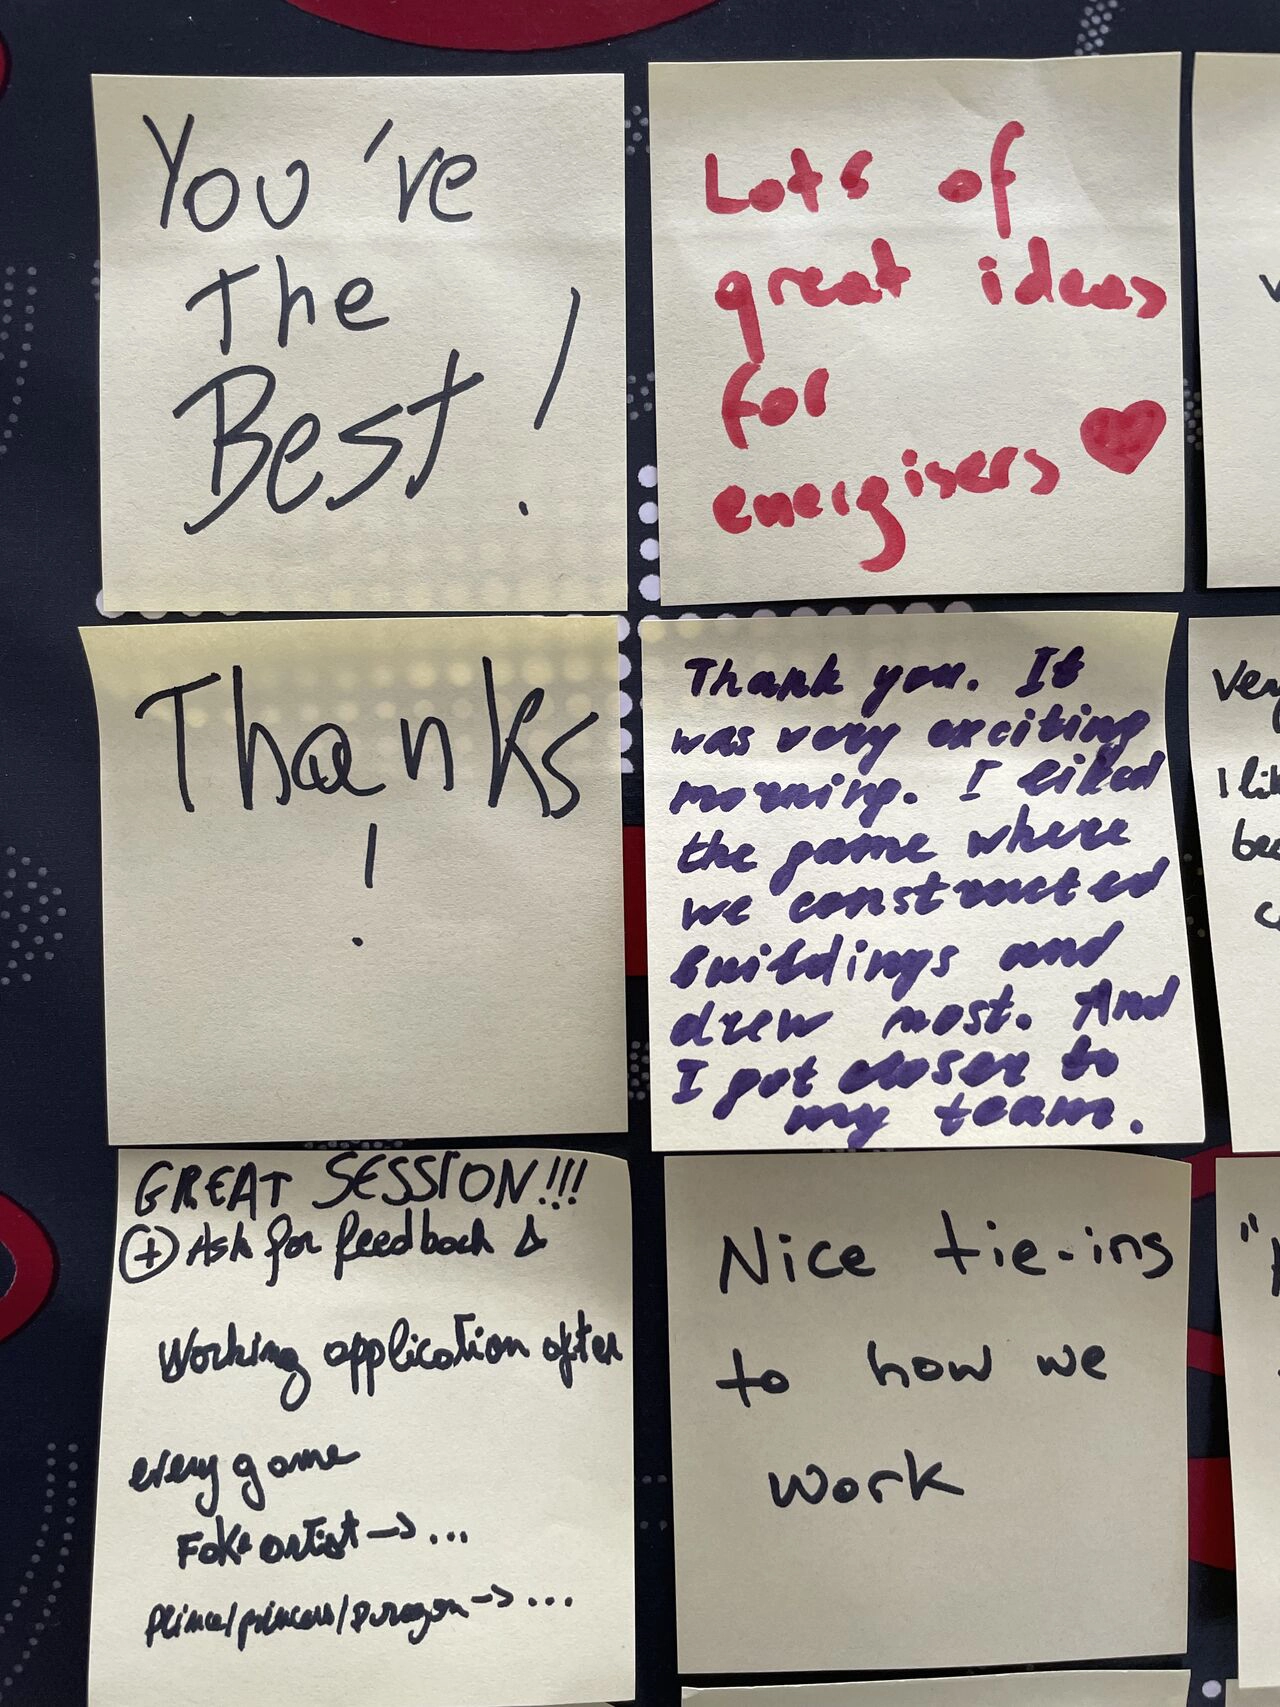 You've
The
Best!
Lots of
great ideas
for
energisers
Thanks
!
Thank you. It
was very exciting
morning. I liked
the game where
we constructed
buildings and
drew most. And
I got closer to
my team.
Very
I li
bec
GREAT SESSION!!!
+ Ask for feedback
Working application after
every game
Fake artist → ...
prince/princess/duragon → ...
Nice tie-ins
to how we
work